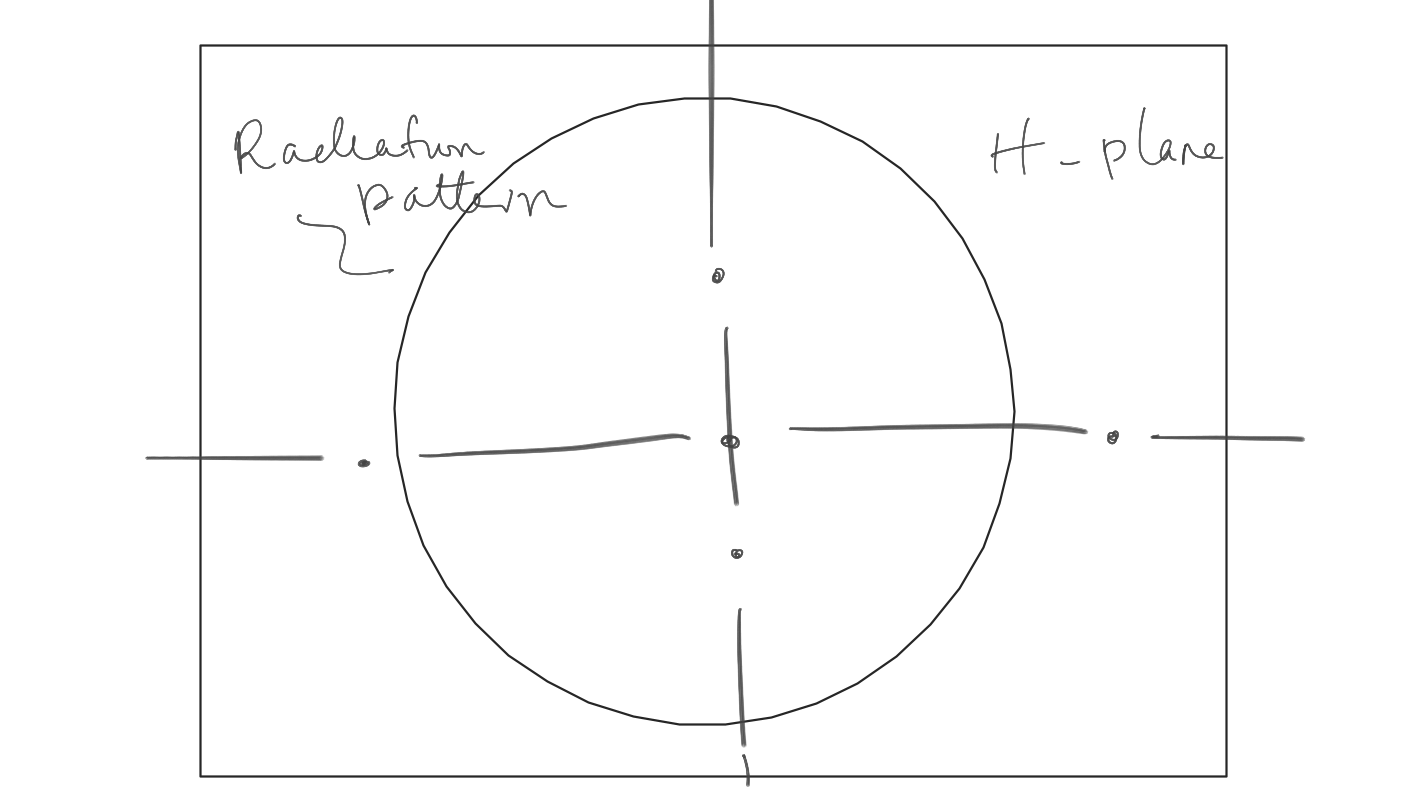 Radiation
pattern
H - plane